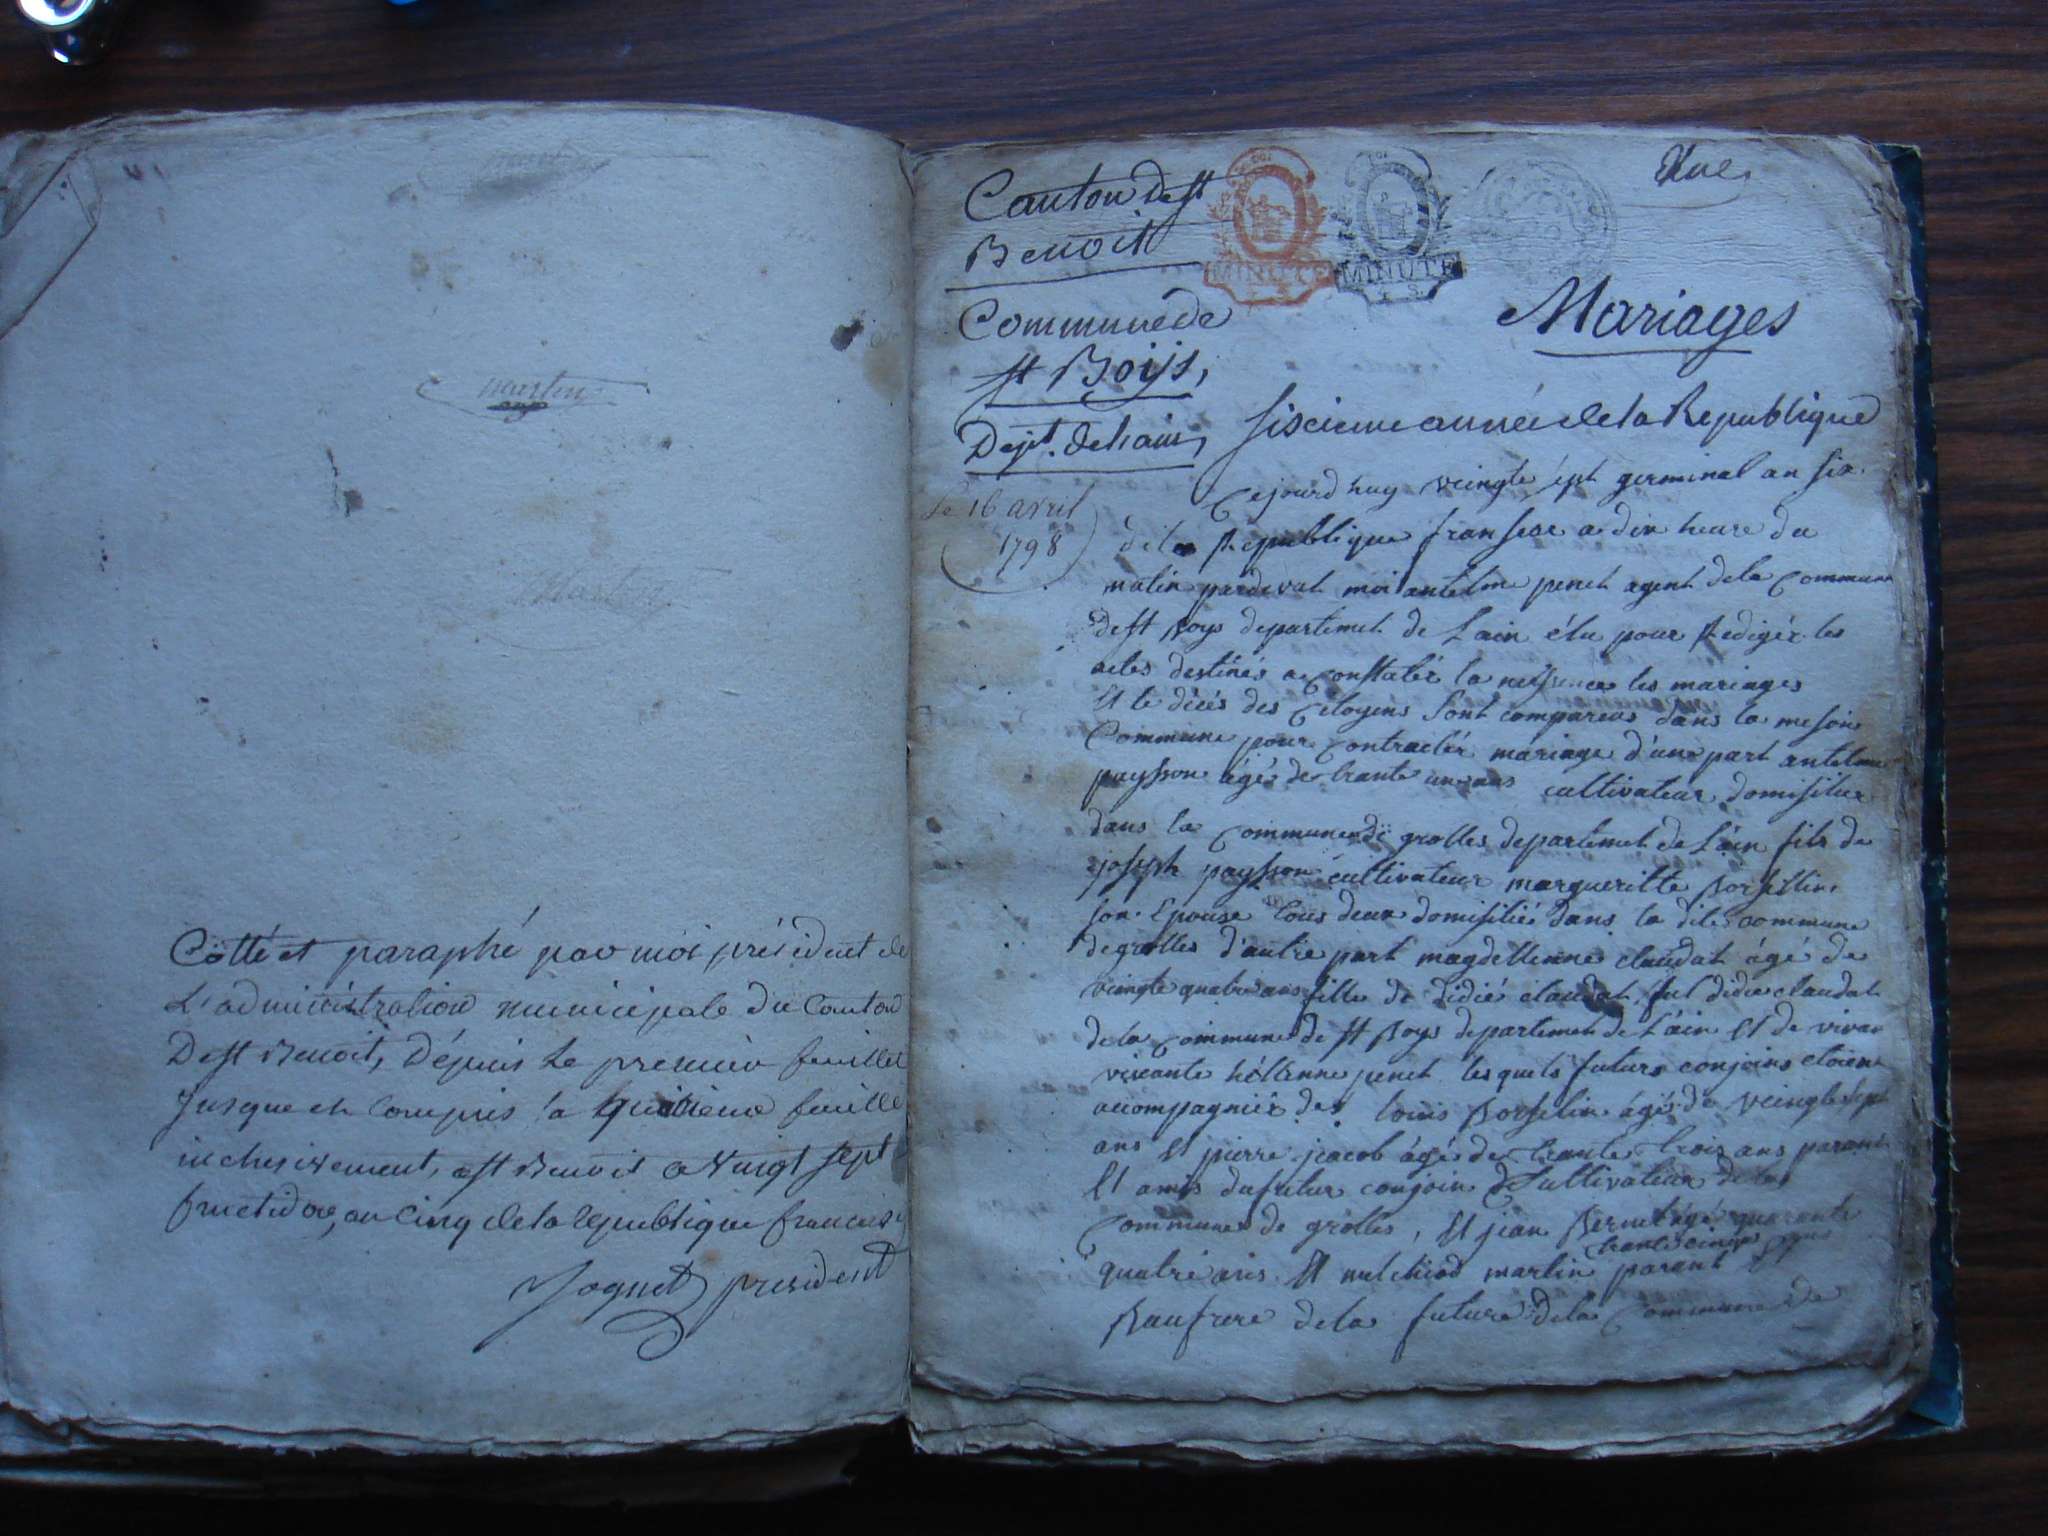 martin
Cotté et paraphé par moi président de
L'administration municipale du Canton
De st Benoit, Dépuis le premier feuillet
Jusque et compris la feuille
inclusivement, a st Benoit a vingt sept
fructidor, an cinq de la republique francaise
Jognet president
Canton de st
Benoit
MINUTE
MINUTE
Commune de
st Boijs,
Dept. de Lain,
Le 16 avril
1798
Une
Mariages
sixieme année de la Republique
Cejourd huy veingte sept germinal an six
de la Republique franseze a dix heure du
matin pardevat moi antelme penet agent de la Commune
de st Boys departemet de Lain élu pour Redigér les
actes destinés a Constatér la neissences les mariages
Et le décés des Citoyens sont compareus dans la meson
Commune pour Contractér mariage d'une part antelme
paysson agés de trante un ans cultivateur domisilier
dans la Commune de grolles departemet de Lain fils de
joseph paysson cultivateur margueritte Borsellin
son Epouse tous deux domisiliés dans la dite commune
de grolles d'autre part magdellenne claudat âgé de
veingte quatre ans fille de didié claudat, ful didie claudat
de la Commune de st Boys departemen de Lain Et de vivan
viveante héllenne penet lesquels futurs conjoins etoient
accompagniér des louis Borselin âgés de veingte sept
ans Et pierre jacob âgés de trante trois ans parans
Et amis du futur conjoin Cultivateur de la
Commune de grolles, Et jean Bernet âgé quarante
quatre ans Et melchiod martin parant
trante cinq ans
Baufrere de la future de la Commune de